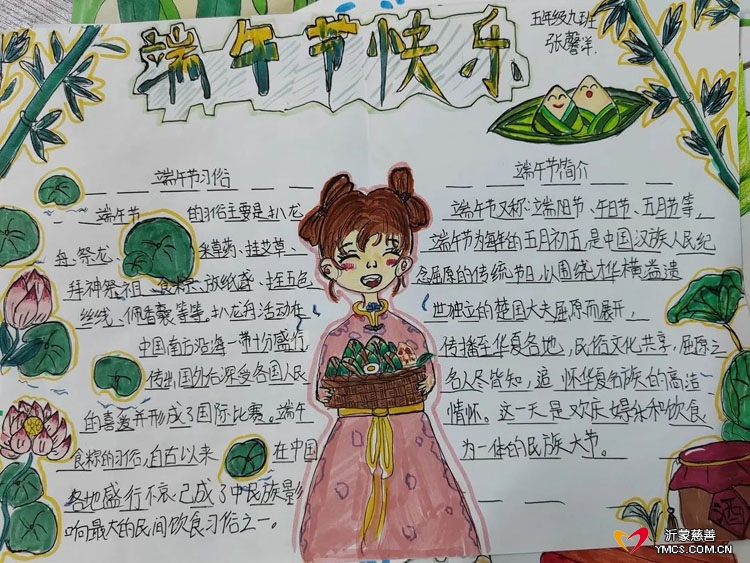 端午节快乐
五年级九班
张馨洋
端午节习俗
端午节的习俗主要是扒龙
舟、祭龙、采草药、挂艾草、
拜神祭祖、食粽、放纸鸢、拴五色
丝线、佩香囊等等。扒龙舟活动在
中国南方沿海一带十分盛行,
传出国外后深受各国人民
的喜爱并形成了国际比赛。端午
食粽的习俗,自古以来在中国
各地盛行不衰已成了中民族影
响最大的民间饮食习俗之一。
端午节简介
端午节又称:端阳节、午日节、五月节等,
端午节为每年的五月初五,是中国汉族人民纪
念屈原的传统节日,以围绕才华横溢遗
世独立的楚国大夫屈原而展开,
传播至华夏各地,民俗文化共享,屈原之
名人尽皆知,追怀华夏名族的高洁
情怀。这一天是欢庆娱乐和饮食
为一体的民族大节。
酒
沂蒙慈善
YMCS.COM.CN